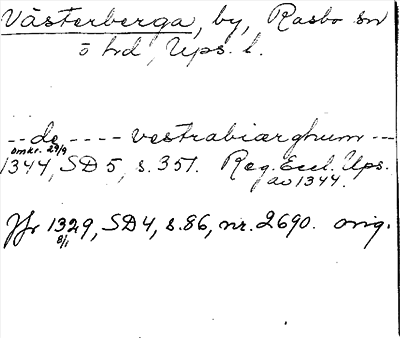 Västerberga, by, Rasbo sn
ö hd, Ups. l.
-- de ---- vestrabiærghum ---
omkr. 29/9
1344, SD 5, s. 351. Reg. Eccl. Ups.
av 1344.
Jfr 1329, SD 4, s. 86, nr. 2690. orig.
8/1